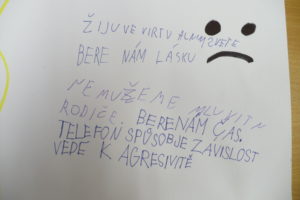 ŽIJU VE VIRTUALNIM SVETE
BERE NÁM LÁSKU
NEMUŽEME MLUVIT N
RODIČE. BERE NÁM ČAS.
TELEFON SPUSOBJE ZÁVISLOST
VEDE K AGRESIVITĚ